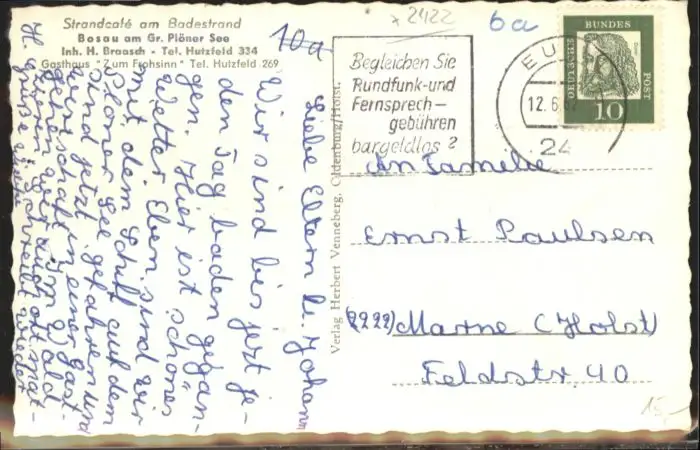 Strandcafé am Badestrand
Bosau am Gr. Plöner See
Inh. H. Braasch - Tel. Hutzfeld 334
Gasthaus "Zum Frohsinn" Tel. Hutzfeld 269
10a
2422
6a
Begleichen Sie
Rundfunk- und
Fernsprech-
gebühren
bargeldlos ?
EU
12.6.
24
DEUTSCHE BUNDES POST
Dürer
10
Liebe Eltern u. Johann
Wir sind bis jetzt je-
den Tag baden gegan-
gen. Hier ist schönes
Wetter. Eben sind wir
mit dem Schiff auf dem
Plöner See gefahren und
sind jetzt in einer Gast-
wirtschaft.
gehen wir zum Wald
Schreibt mal
Grüße wieder
Verlag Herbert Venneberg, Oldenburg/Holst.
An Familie
Ernst Paulsen
(2222) Marne (Holst)
Feldstr. 40
15,-